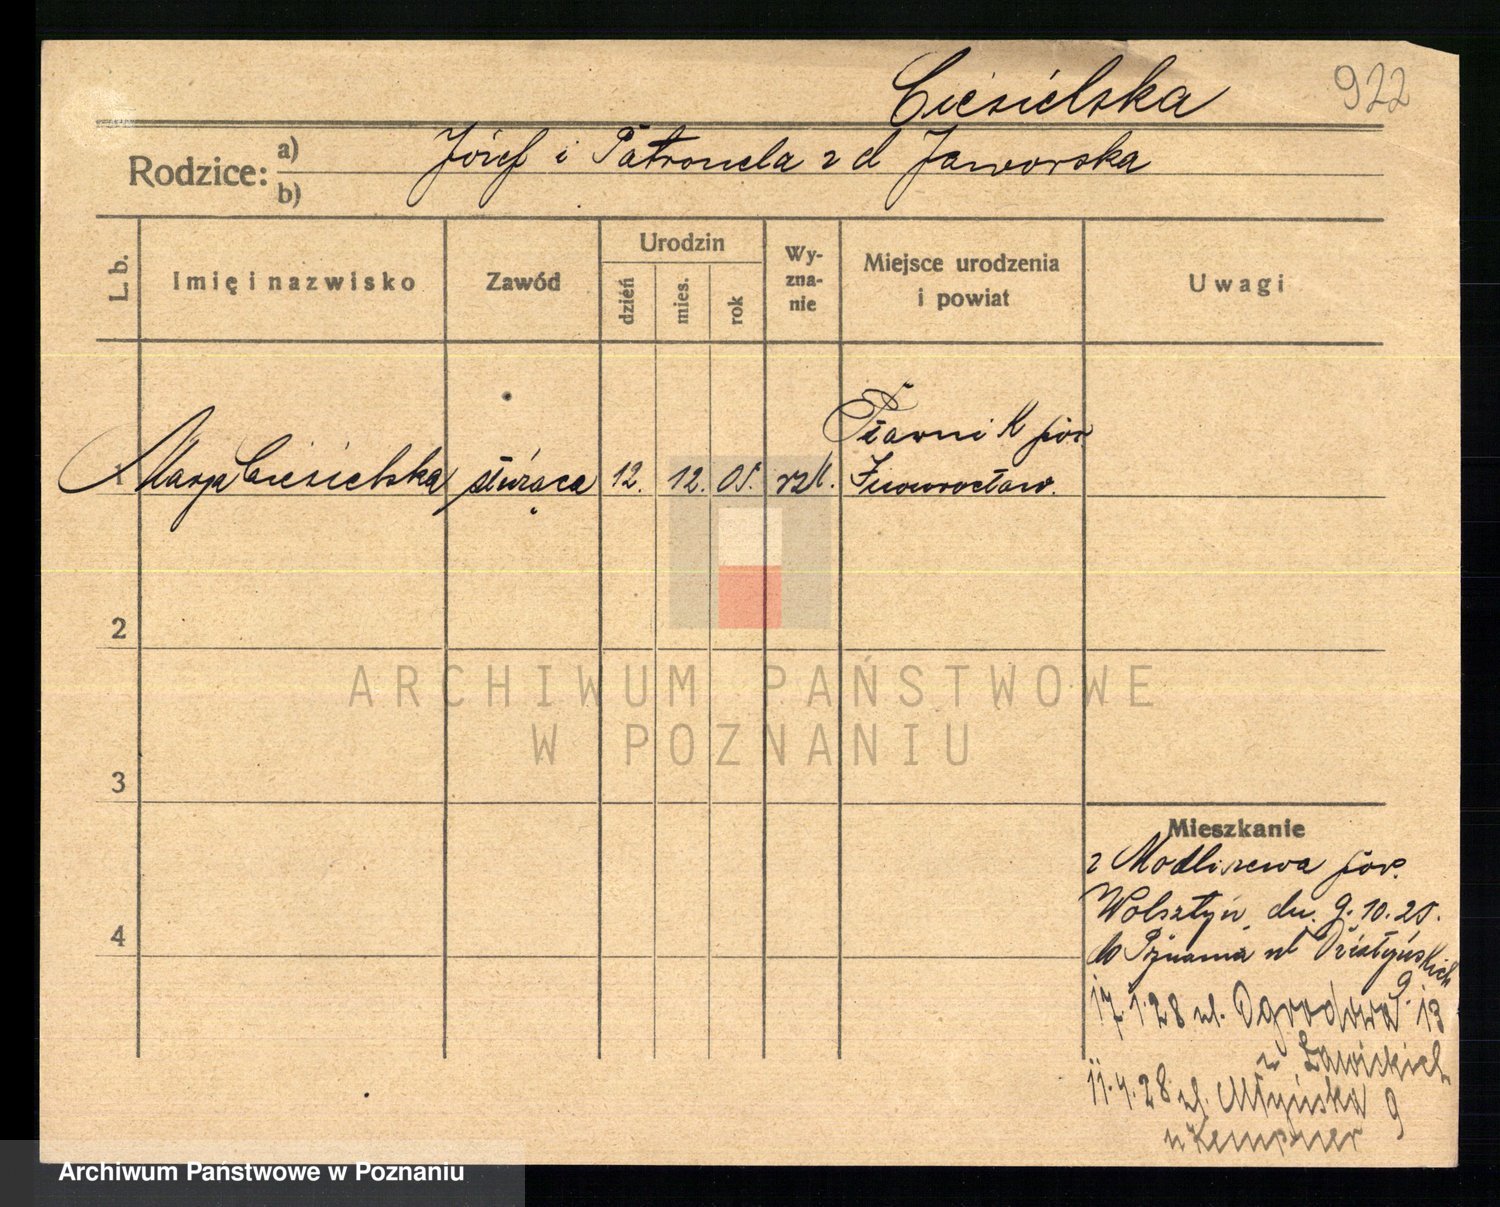 Ciesielska
922
Rodzice: a) b)
Józef i Patronela z d Jaworska
L. b.
Imię i nazwisko
Zawód
Urodzin
dzień
mies.
rok
Wy-
zna-
nie
Miejsce urodzenia
i powiat
Uwagi
1 Marja Ciesielska służąca 12. 12. 05. rzk. pow.
Inowrocław.
2
3
4
ARCHIWUM PAŃSTWOWE
W POZNANIU
Mieszkanie
z Modliszewa pow.
Wolsztyn dn. 9.10.25.
do Poznania ul Działyńskich
9.
17.1.28 ul. Ogrodowa 13
u Ławickich
11.4.28 ul. Młyńska 9
u Kempner
Archiwum Państwowe w Poznaniu